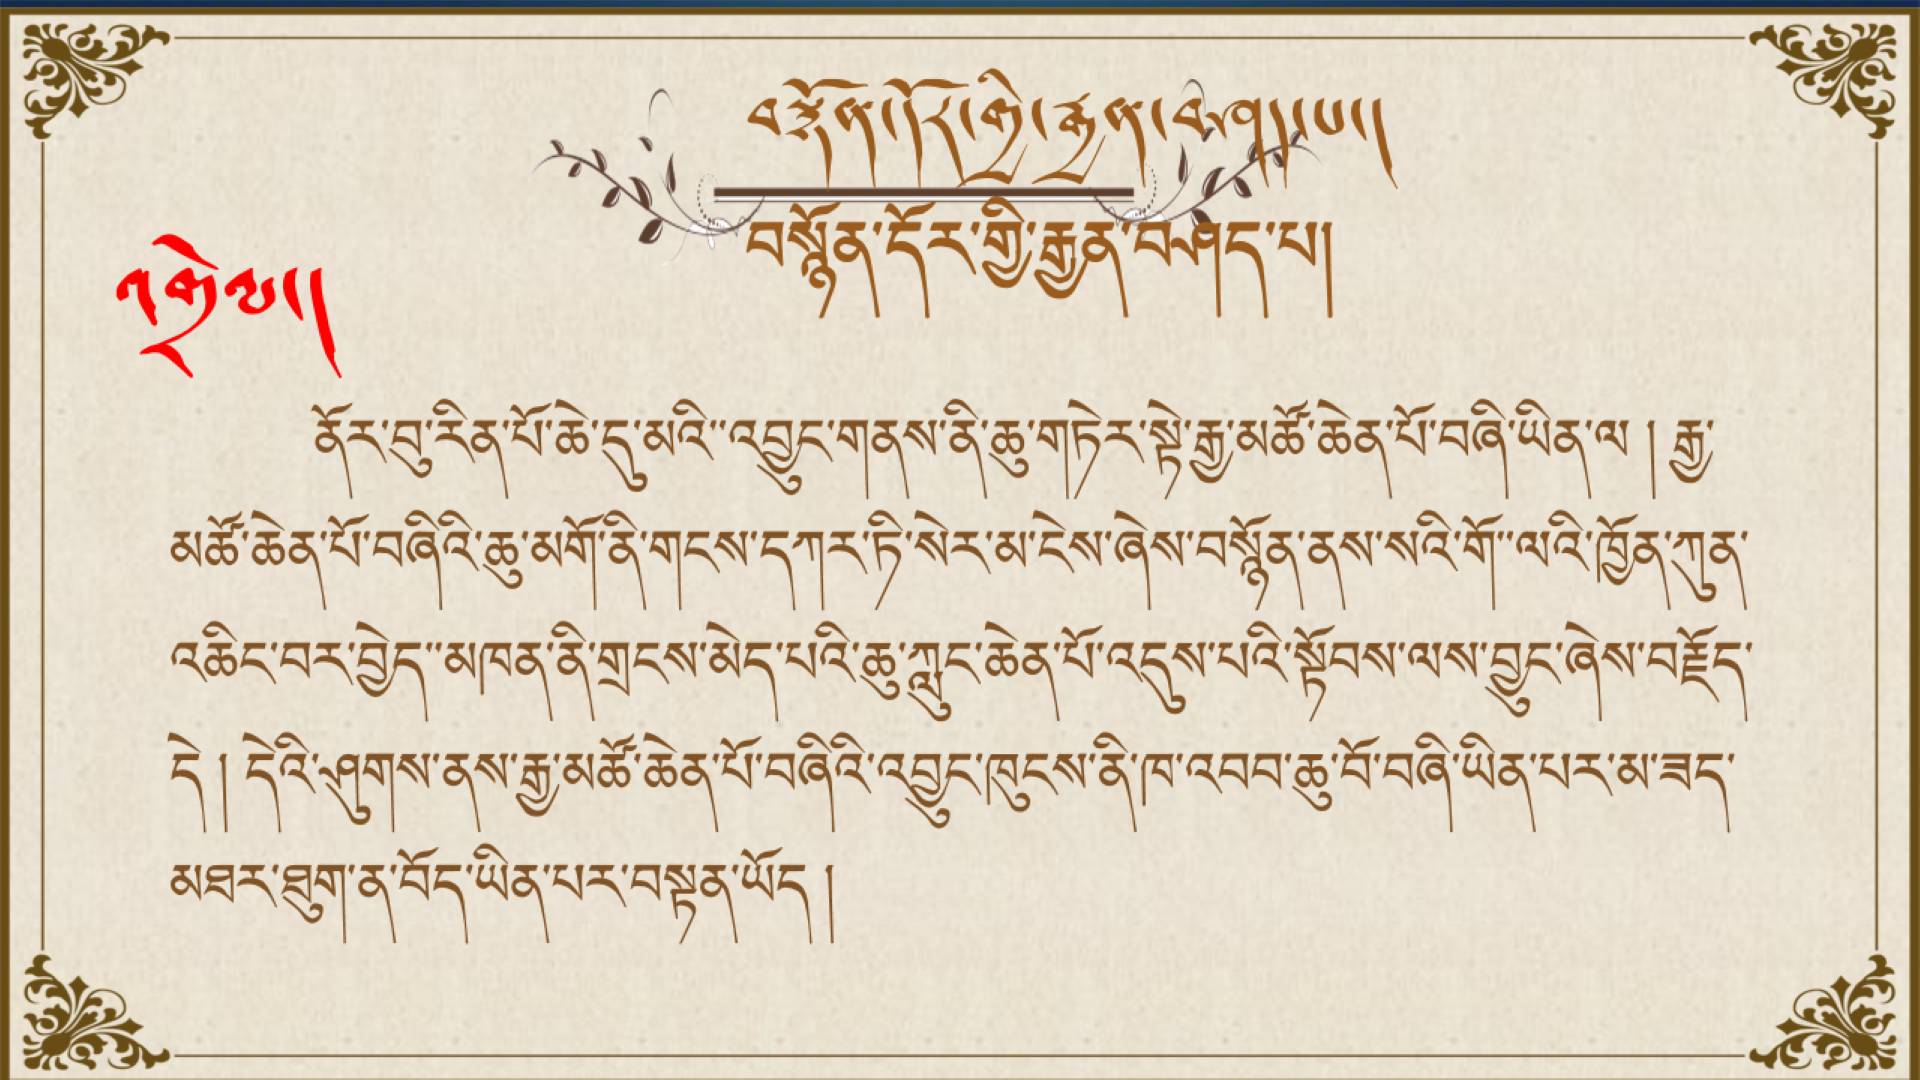 བསྙོན་དོར་གྱི་རྒྱན་བཤད་པ།
བསྙོན་དོར་གྱི་རྒྱན་བཤད་པ།
འགྲེལ།
ནོར་བུ་རིན་པོ་ཆེ་དུ་མའི་་འབྱུང་གནས་ནི་ཆུ་གཏེར་སྟེ་རྒྱ་མཚོ་ཆེན་པོ་བཞི་ཡིན་ལ། རྒྱ་
མཚོ་ཆེན་པོ་བཞིའི་ཆུ་མགོ་ནི་གངས་དཀར་ཏི་སེར་མ་ངེས་ཞེས་བསྙོན་ནས་སའི་གོ་་ལའི་ཁྱོན་ཀུན་
འཆིང་བར་བྱེད་་མཁན་ནི་གྲངས་མེད་པའི་ཆུ་ཀླུང་ཆེན་པོ་འདུས་པའི་སྟོབས་ལས་བྱུང་ཞེས་བརྗོད་
དེ། དེའི་ཤུགས་ནས་རྒྱ་མཚོ་ཆེན་པོ་བཞིའི་འབྱུང་ཁུངས་ནི་ཁ་འབབ་ཆུ་བོ་བཞི་ཡིན་པར་མ་ཟད་
མཐར་ཐུག་ན་བོད་ཡིན་པར་བསྟན་ཡོད།